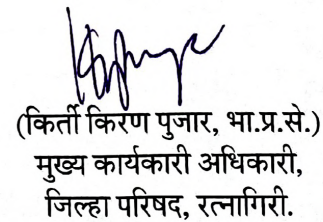 (किर्ती किरण पुजार, भा.प्र.से.)
मुख्य कार्यकारी अधिकारी,
जिल्हा परिषद, रत्नागिरी.